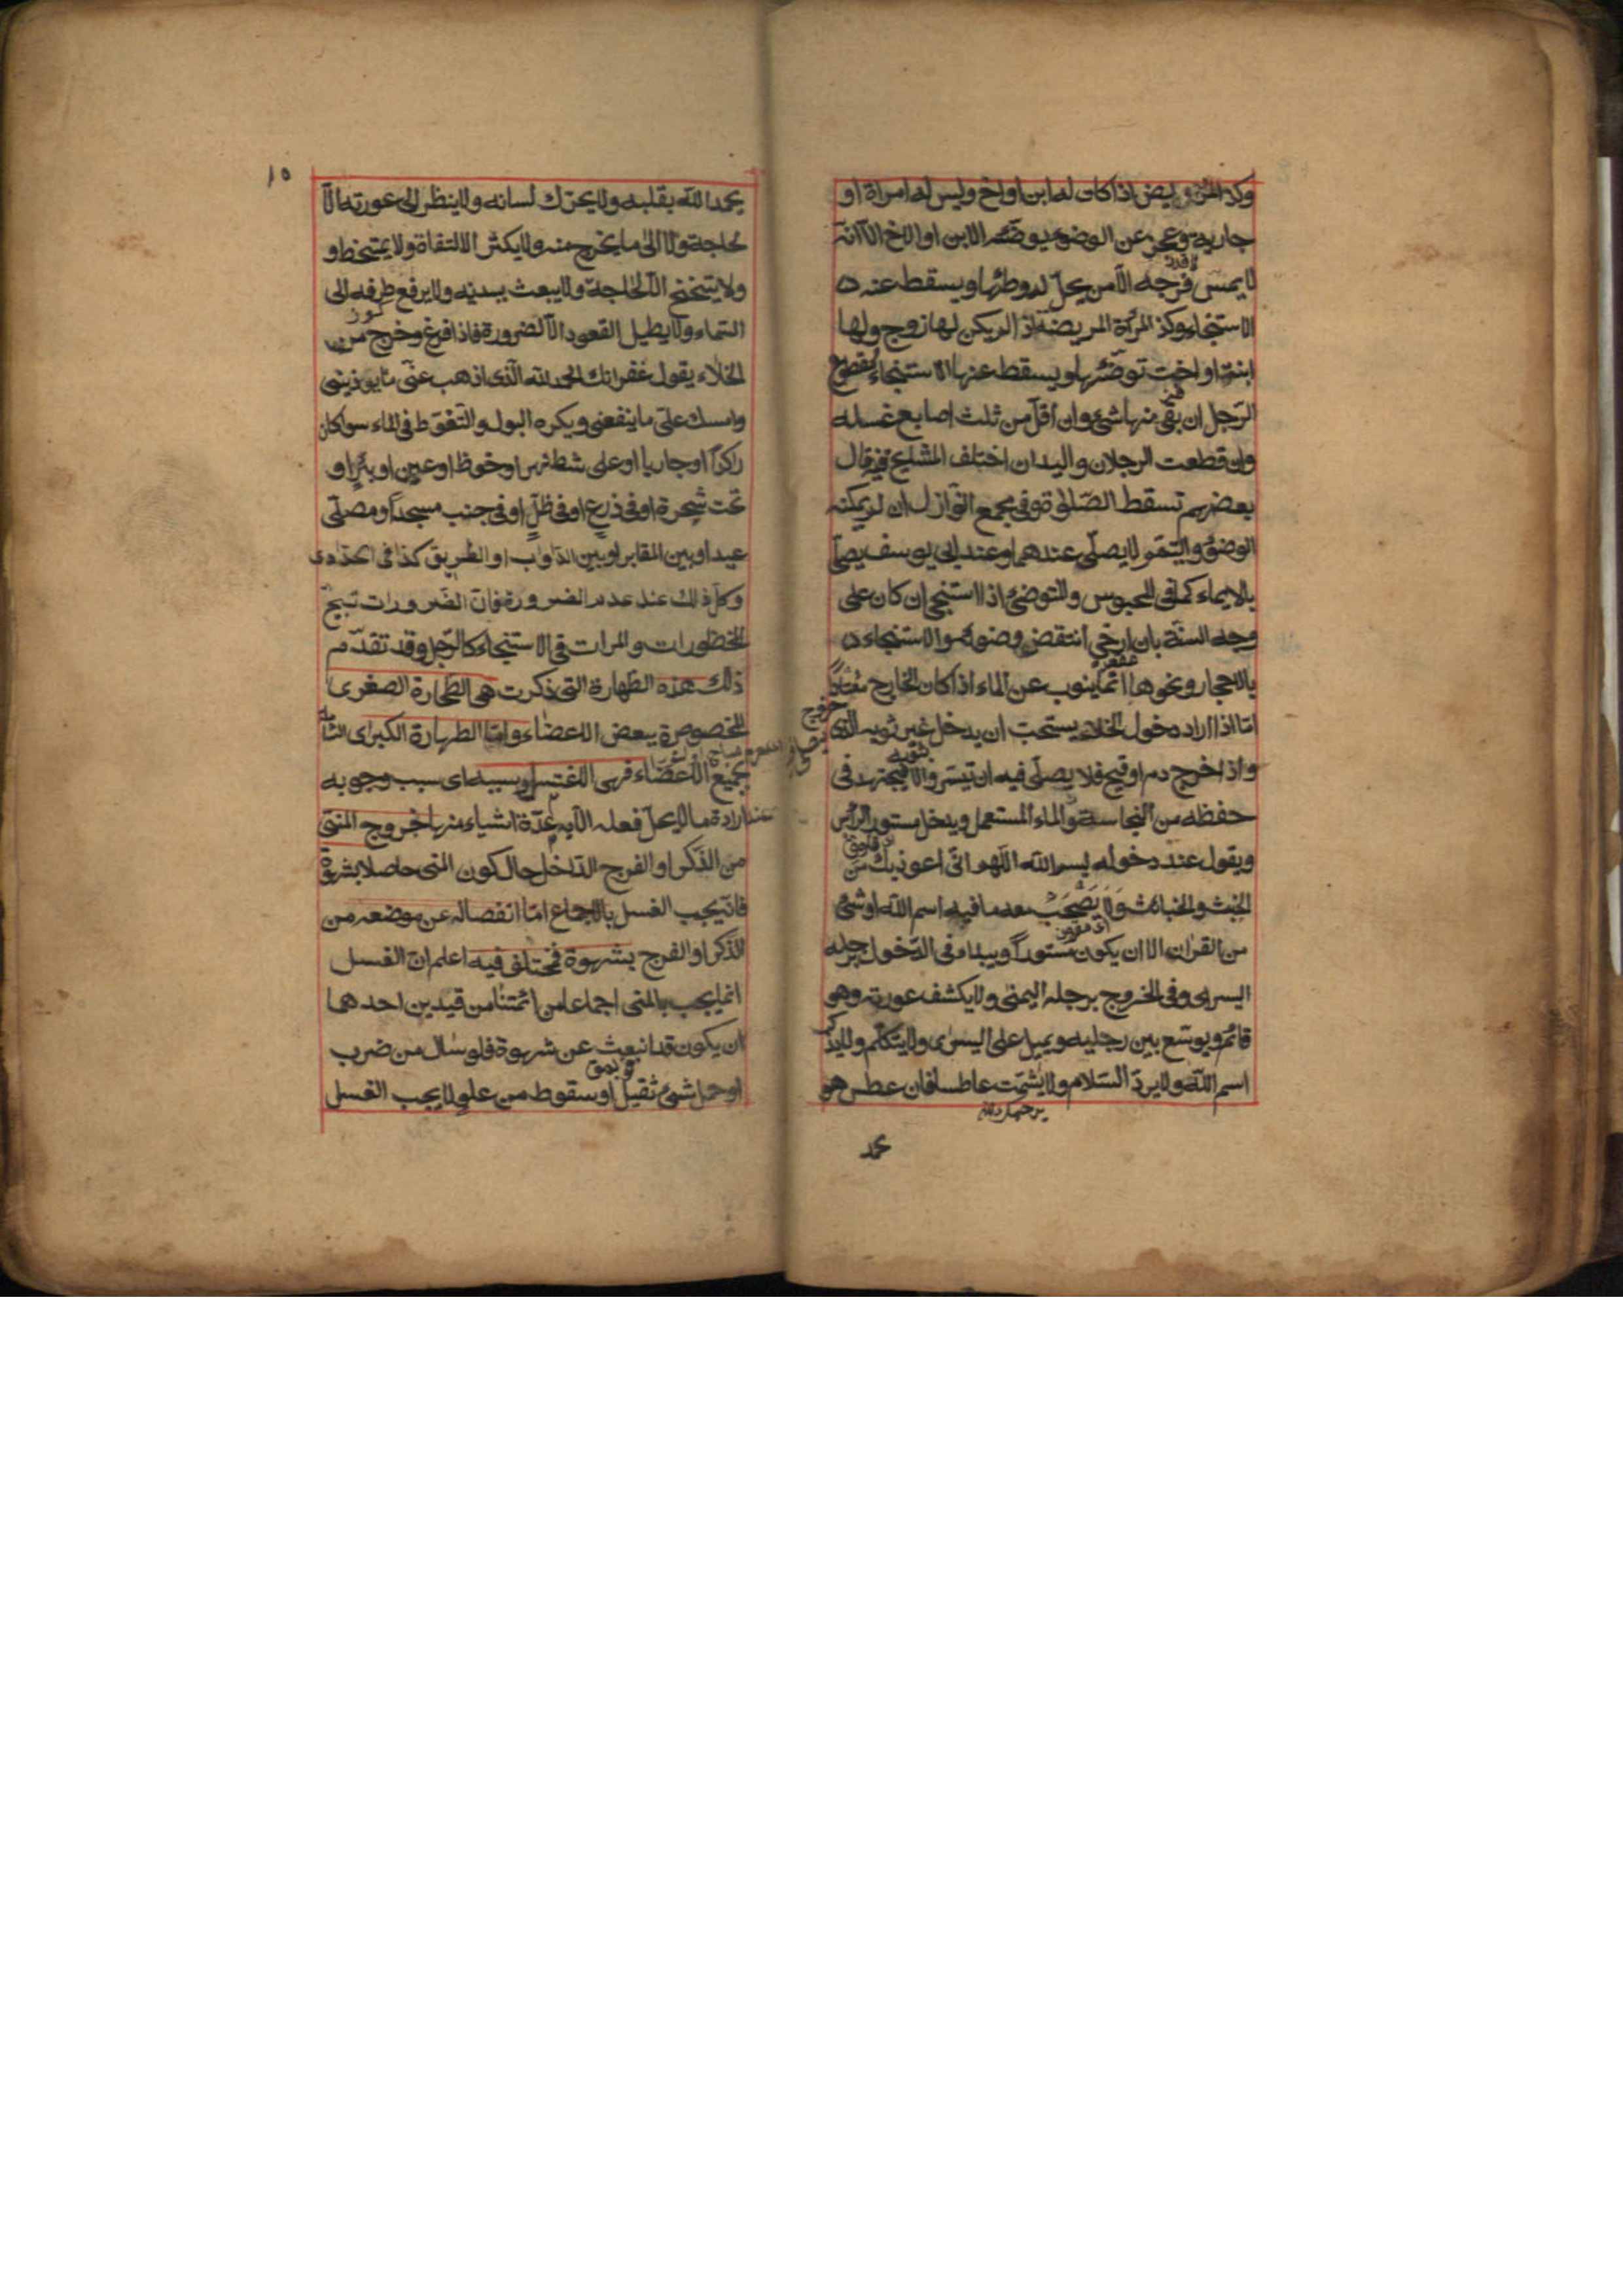 وكذا المريض اذا كان له ابن او اخ وليس له امراة او
جارية وعجز عن الوضوء يوضئه الابن او الاخ الا انه
لا يمس فرجه الا من يحل له وطئها ويسقط عنه
الاستنجاء وكذ المرأة المريضة اذ الم يكن لها زوج ولها
ابنة او اخت توضئها ويسقط عنها الاستنجاء
الرجل ان بقى منها شئ وان اقل من ثلث اصابع غسله
وان قطعت الرجلان واليدان اختلف المشايخ فيه قال
بعضهم تسقط الصلوة وفى مجمع النوازل ان لم يمكنه
الوضوء والتيمم لا يصلى عندهما وعند ابى يوسف يصلى
بالايماء كما فى المحبوس والمتوضئ اذا استنجى ان كان على
وجه السنة بان ارخى انتقض وضوءه والاستنجاء
بالاحجار ونحوها انما ينوب عن الماء اذا كان الخارج معتادا
امّا اذا اراد دخول الخلاء يستحب ان يدخل غير ثوبه الذى
واذا خرج دم او قيح فلا يصلى فيه ان تيسر والا فيجتهد فى
حفظه من النجاسة والماء المستعمل ويدخل مستور الرأس
ويقول عند دخوله بسم الله اللهم انى اعوذ بك من
الخبث والخبائث ولا يصحب معه ما فيه اسم الله او شئ
من القران الا ان يكون مستورا ويبداء فى الدخول برجله
اليسرى وفى الخروج برجله اليمنى ولا يكشف عورته وهو
قائم ويوسّع بين رجليه ويميل على اليسرى ولا يتكلم ولا يذكر
اسم الله ولا يرد السلام ولا يشمت عاطسا فان عطس هو
يحمد
١٥
يحمد الله بقلبه ولا يحرك لسانه ولا ينظر الى عورته الا
لحاجة ولا الى ما يخرج منه ولا يكثر الالتفاة ولا يمتخط و
ولا يتنخنح الا لحاجة ولا يبعث ببدنه ولا يرفع طرفه الى
السماء ولا يطيل القعود الا لضرورة فاذا فرغ وخرج من
الخلاء يقول غفرانك الحمد لله الذى اذهب عنى ما يوذينى
وامسك على ما ينفعنى ويكره البول والتغوط فى الماء سوا كان
راكدا او جاريا او على شط نهر او حوض او عين او بئر او
تحت شجرة او فى زرع او فى ظل او فى جنب مسجد او مصلى
عيد او بين المقابر او بين الدواب او الطريق كذا فى الحدادى
وكل ذلك عند عدم الضرورة فان الضرورات تبيح
المحظورات والمرات فى الاستنجاء كالرجل وقد تقدم
ذلك هذه الطهارة التى ذكرت هى الطهارة الصغرى
المخصوصة ببعض الاعضاء وامّا الطهارة الكبرى الشاملة
بجميع الاعضاء فهى الاغتسل وسببه اى سبب وجوبه
عند ارادة ما لا يحل فعله الا به عدة اشياء منها خروج المنى
من الذكر او الفرج الداخل حال كون المنى حاصلا بشهوة
فانه يجب الغسل بالاجماع امّا انفصاله عن موضعه من
الذكر او الفرج بشهوة فمختلف فيه اعلم ان الغسل
انما يجب بالمنى اجماعا من ائمتنا من قيدين احدهما
ان يكون قد انبعث عن شهوة فلو سال من ضرب
او حمل شئ ثقيل او سقوط من علو لا يجب الغسل